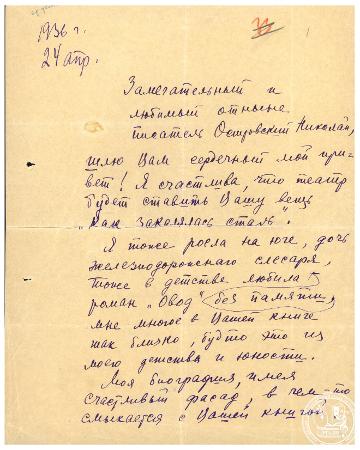 1936 г.
24 апр.
Замечательный и
любимый отныне
писатель Островский Николай,
шлю Вам сердечный мой при-
вет! Я счастлива, что театр
будет ставить Вашу вещь
"Как закалялась сталь".
Я тоже росла на юге, дочь
железнодорожного слесаря,
тоже в детстве любила
роман "Овод" без памяти,
мне многое в Вашей книге
так близко, будто это из
моего детства и юности.
Моя биография, имея
счастливый фасад, в чем-то
смыкается с Вашей книгой